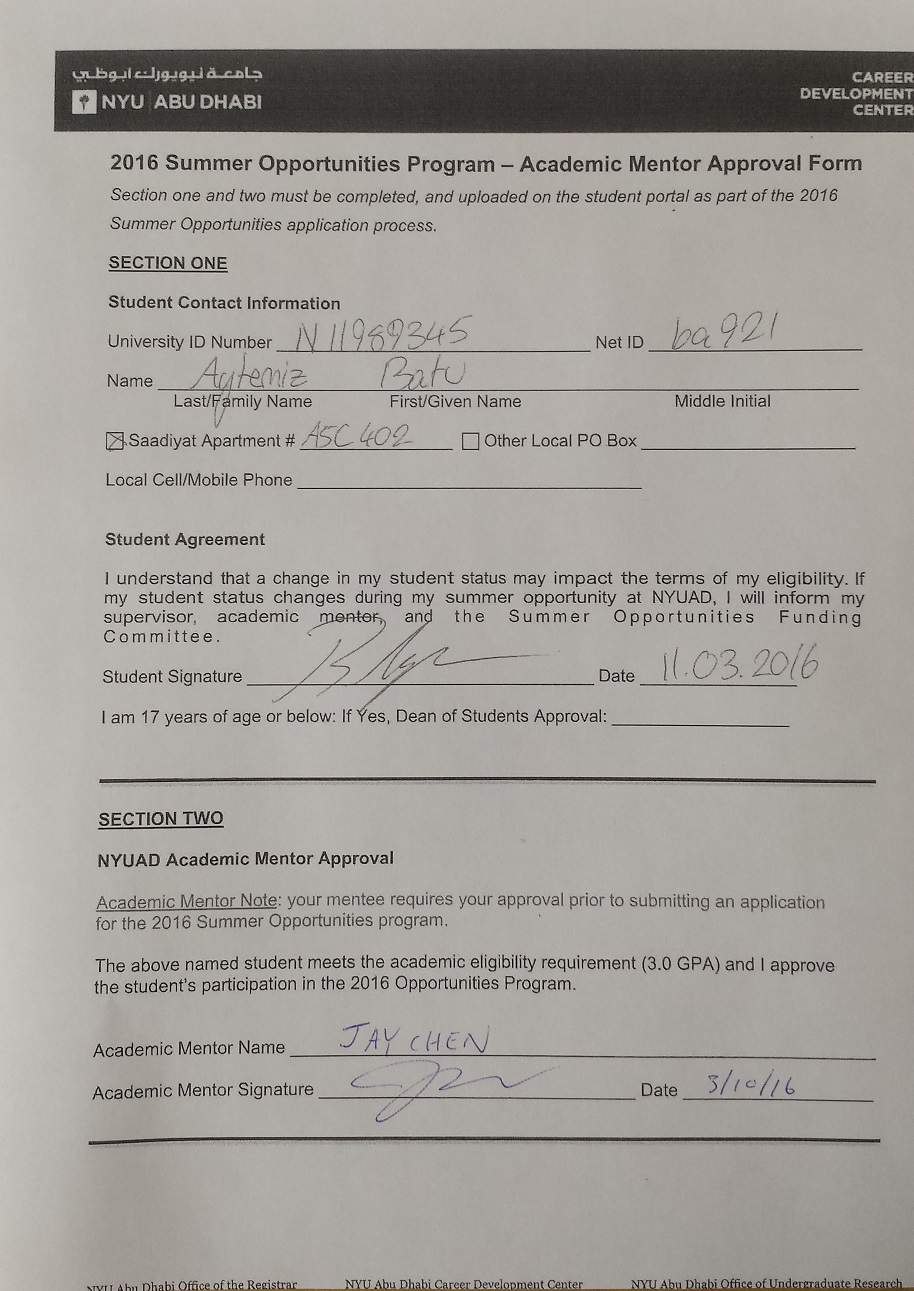 جامعة نيويورك أبوظبي
NYU ABU DHABI
CAREER
DEVELOPMENT
CENTER
2016 Summer Opportunities Program – Academic Mentor Approval Form
Section one and two must be completed, and uploaded on the student portal as part of the 2016
Summer Opportunities application process.
SECTION ONE
Student Contact Information
University ID Number N11989345 Net ID ba921
Name Aytemiz Batu
Last/Family Name First/Given Name Middle Initial
Saadiyat Apartment # A5C 402 Other Local PO Box
Local Cell/Mobile Phone
Student Agreement
I understand that a change in my student status may impact the terms of my eligibility. If
my student status changes during my summer opportunity at NYUAD, I will inform my
supervisor, academic mentor, and the Summer Opportunities Funding
Committee.
Student Signature Date 11.03.2016
I am 17 years of age or below: If Yes, Dean of Students Approval:
SECTION TWO
NYUAD Academic Mentor Approval
Academic Mentor Note: your mentee requires your approval prior to submitting an application
for the 2016 Summer Opportunities program.
The above named student meets the academic eligibility requirement (3.0 GPA) and I approve
the student's participation in the 2016 Opportunities Program.
Academic Mentor Name JAY CHEN
Academic Mentor Signature Date 3/10/16
NYU Abu Dhabi Office of the Registrar NYU Abu Dhabi Career Development Center NYU Abu Dhabi Office of Undergraduate Research